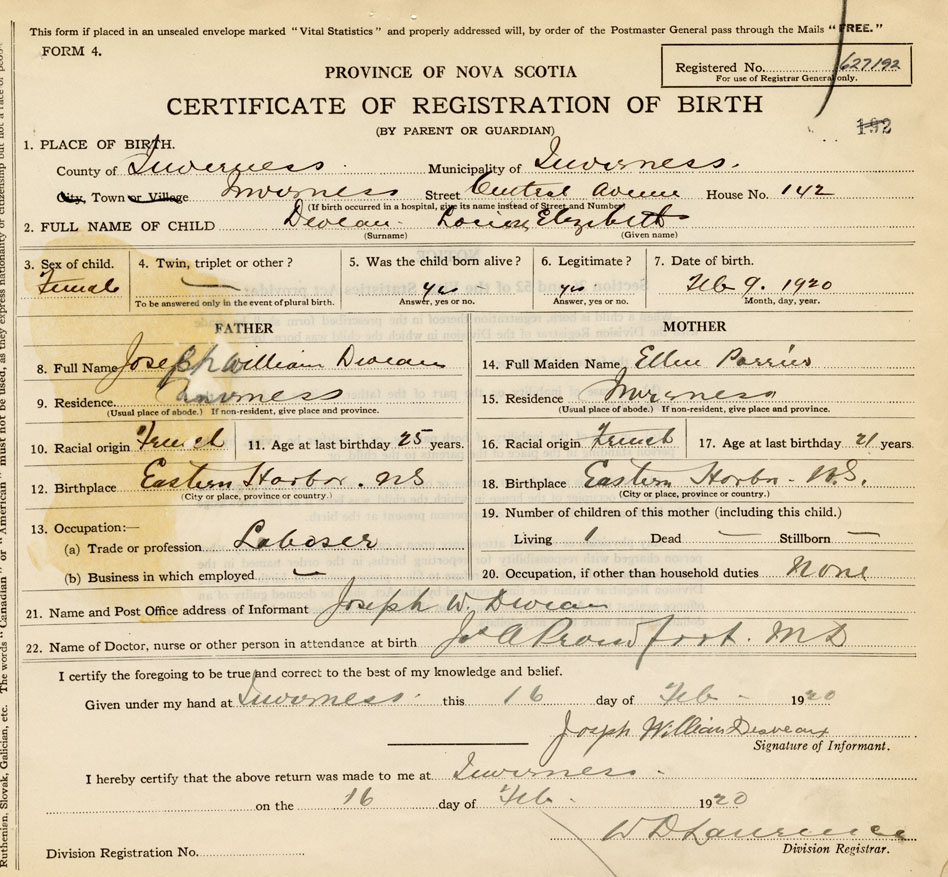 This form if placed in an unsealed envelope marked "Vital Statistics" and properly addressed will, by order of the Postmaster General pass through the Mails "FREE."
FORM 4.
Registered No. 627192
For use of Registrar General only.
PROVINCE OF NOVA SCOTIA
CERTIFICATE OF REGISTRATION OF BIRTH
(BY PARENT OR GUARDIAN)
192
1. PLACE OF BIRTH.
County of Inverness Municipality of Inverness.
City, Town or Village Inverness Street Central Avenue House No. 142
(If birth occurred in a hospital, give its name instead of Street and Number)
2. FULL NAME OF CHILD Deveau Elizabeth
(Surname) (Given name)
3. Sex of child. 4. Twin, triplet or other? 5. Was the child born alive? 6. Legitimate? 7. Date of birth.
Female — yes yes Feb 9. 1920
To be answered only in the event of plural birth. Answer, yes or no. Answer, yes or no. Month, day, year.
FATHER MOTHER
8. Full Name Joseph William Deveau 14. Full Maiden Name Ellen
9. Residence. Inverness 15. Residence Inverness
(Usual place of abode.) If non-resident, give place and province. (Usual place of abode.) If non-resident, give place and province.
10. Racial origin French 11. Age at last birthday 25 years. 16. Racial origin French 17. Age at last birthday 21 years.
12. Birthplace Eastern Harbor. NS 18. Birthplace Eastern Harbor - N.S.
(City or place, province or country.) (City or place, province or country.)
13. Occupation:— 19. Number of children of this mother (including this child.)
(a) Trade or profession Laboser Living 1 Dead — Stillborn —
(b) Business in which employed — 20. Occupation, if other than household duties None
21. Name and Post Office address of Informant Joseph W. Deveau
22. Name of Doctor, nurse or other person in attendance at birth A Proudfoot. MD
I certify the foregoing to be true and correct to the best of my knowledge and belief.
Given under my hand at Inverness this 16 day of Feb - 1920
Joseph William Desveaux
Signature of Informant.
I hereby certify that the above return was made to me at Inverness.
on the 16 day of Feb. 1920
W D Lawrence
Division Registration No. Division Registrar.
Ruthenien, Slovak, Galician, etc. The words "Canadian" or "American" must not be used, as they express nationality or citizenship but not a race of